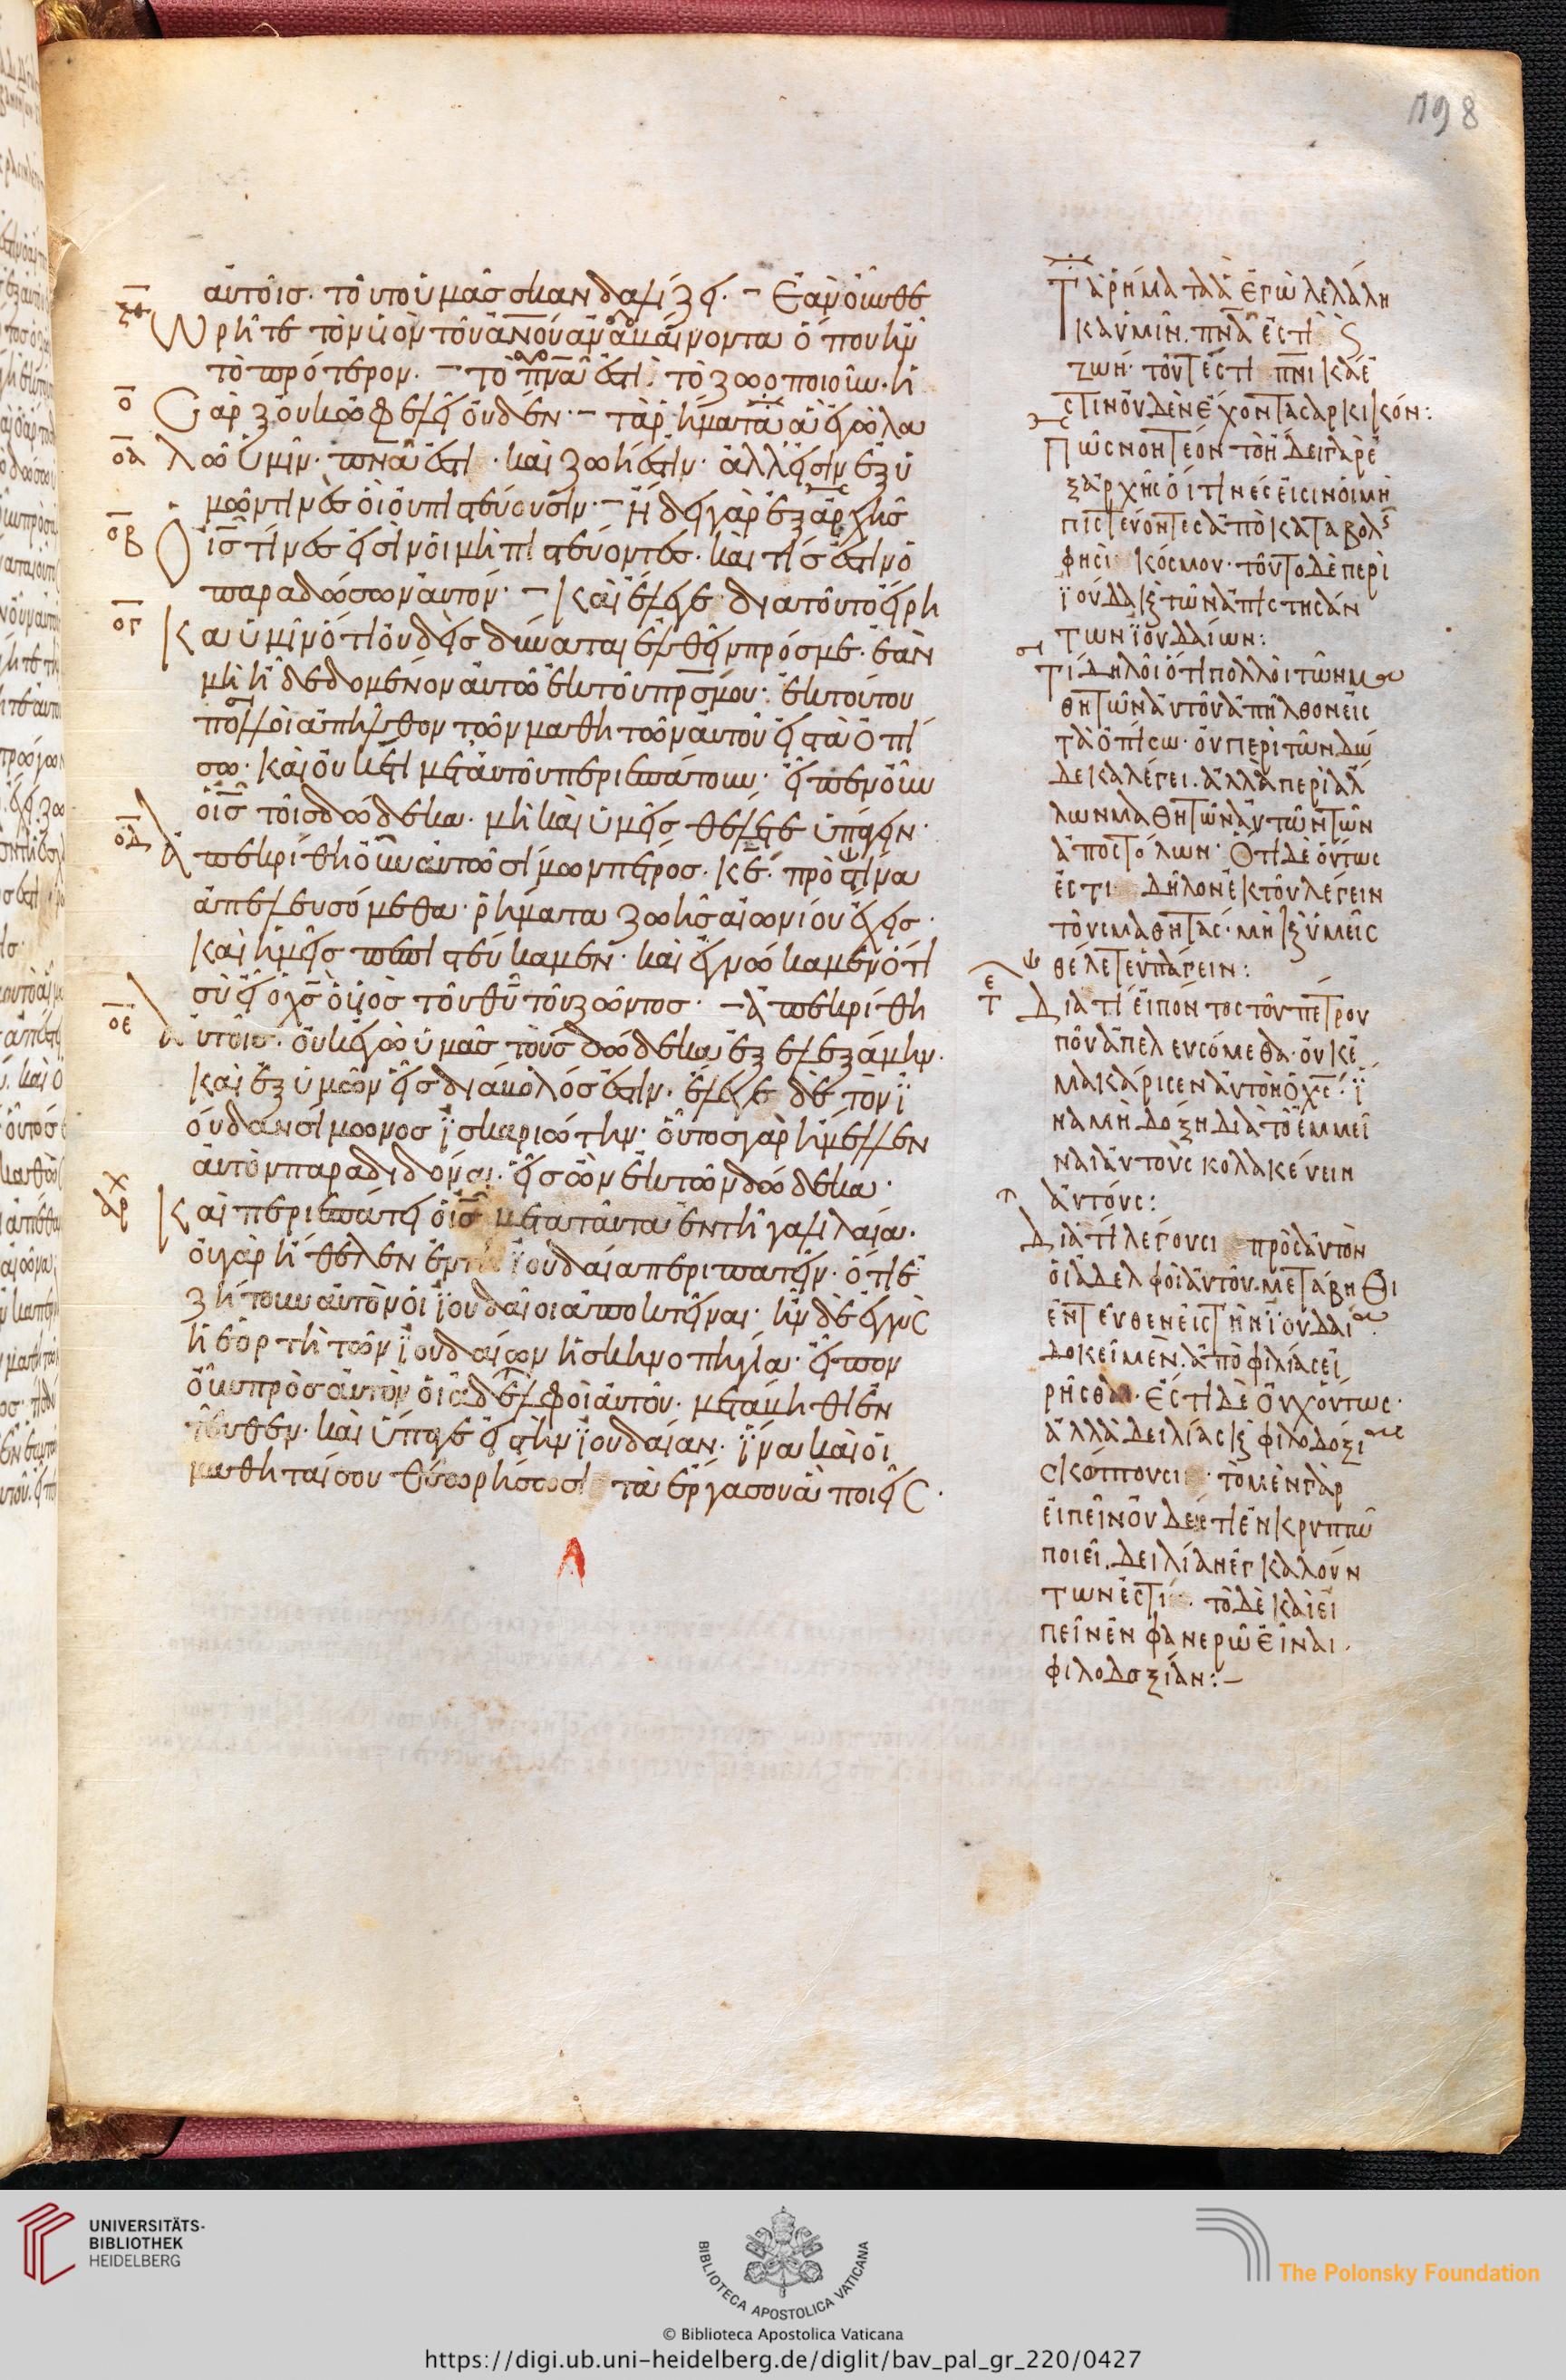 198
αὐτοῖς· τοῦτο ὑμᾶς σκανδαλίζει· – Ἐὰν οὖν θε
ξθ
ωρῆτε τὸν υἱὸν τοῦ ἀνου ἀναβαίνοντα ὅπου ἦν
τὸ πρότερον· – τὸ πνᾶ ἐστὶ τὸ ζωοποιοῦν· ἡ
ο
σὰρξ οὐκ ὠφελεῖ οὐδέν· – τὰ ῥήματα ἃ ἐγὼ λα
οα
λῶ ὑμῖν· πνᾶ ἐστὶ· καὶ ζωή ἐστιν· ἀλλ' εἰσὶν ἐξ ὑ
μῶν τινὲς οἳ οὐ πιστεύουσιν· – ἤδει γὰρ ἐξ ἀρχῆς
οβ
ὁ ις τίνες εἰσὶν οἱ μὴ πιστεύοντες· καὶ τίς ἐστιν ὁ
παραδώσων αὐτόν· – Καὶ ἔλεγε· διατοῦτο εἴρη
ογ
κα ὑμῖν ὅτι οὐδεὶς δύναται ἐλθεῖν πρός με· ἐὰν
μὴ ἦ δεδομένον αὐτῶ ἐκ τοῦ πρσ μου· ἐκ τούτου
πολλοὶ ἀπῆλθον τῶν μαθητῶν αὐτοῦ εἰς τὰ ὀπί
σω· καὶ οὐκέτι μετ' αὐτοῦ περιεπάτουν· εἶπεν οὖν
ὁ ις τοῖς δώδεκα· μὴ καὶ ὑμεῖς θέλετε ὑπάγειν·
οδ
ἀπεκρίθη οὖν αὐτῶ σίμων πέτρος· κε· πρὸς τίνα
ἀπελευσόμεθα· ῥήματα ζωῆς αἰωνίου ἔχεις·
καὶ ἡμεῖς πεπιστεύκαμεν· καὶ ἐγνώκαμεν ὅτι
σὺ εἶ ὁ χς ὁ υἱὸς τοῦ θυ τοῦ ζῶντος· – ἀπεκρίθη
οε
αὐτοῖς· οὐκ ἐγὼ ὑμᾶς τοὺς δώδεκα ἐξελεξάμην·
καὶ ἐξ ὑμῶν εἷς διάβολός ἐστιν· ἔλεγε δὲ τὸν ϊ
ούδαν σίμωνος ϊσκαριώτην· οὗτος γὰρ ἤμελλεν
αὐτὸν παραδιδόναι· εἷς ὢν ἐκ τῶν δώδεκα·
χ
ἀρ
Καὶ περιεπάτει ὁ ις μετὰ ταῦτα ἐν τῆ γαλιλαία·
οὐ γὰρ ἤθελεν ἐν τῆ ϊουδαία περιπατεῖν· ὅτι ἐ
ζήτουν αὐτὸν οἱ ϊουδαῖοι ἀποκτεῖναι· ἦν δὲ ἐγγὺς
ἡ ἑορτὴ τῶν ϊουδαίων ἡ σκηνοπηγία· εἶπον
οὖν πρὸς αὐτὸν οἱ ἀδελφοὶ αὐτοῦ· μετάβηθι ἐν
τεῦθεν· καὶ ὕπαγε εἰς τὴν ϊουδαίαν· ἵνα καὶ οἱ
μαθηταί σου θεωρήσωσι τὰ ἔργα σου ἃ ποιεῖς·
Τὰ ῥήματα ἃ ἐγὼ λελάλη
κα ὑμῖν· πνᾶ ἐστὶ ϛ
ζωή· τοῦτέστι πνικὰ ἐ
στὶν οὐδὲν ἔχοντα σαρκικόν:
Πῶς νοητέον τὸ ἤδει γὰρ ἐ
ξ ἀρχῆς ὁ ις τίνες εἰσὶν οἱ μὴ
πιστεύοντες ἀπὸ καταβολῆς
φησὶ κόσμου· τοῦτο δὲ περὶ
ϊούδα ϗ τῶν ἀπιστησάν
των ϊουδαίων:
Τί δηλοῖ ὅτι πολλοὶ τῶν μα
θητῶν αὐτοῦ ἀπῆλθον εἰς
τὰ ὀπίσω· οὐ περὶ τῶν δώ
δεκα λέγει· ἀλλὰ περὶ ἄλ
λων μαθητῶν αὐτῶν τῶν
ἀποστόλων· Ὅτι δὲ οὕτως
ἐστι δῆλον ἐκ τοῦ λέγειν
τοὺς μαθητάς· μὴ ϗ ὑμεῖς
θέλετε ὑπάγειν:
Διατί εἰπόντος τοῦ πέτρου
ποῦ ἀπελευσόμεθα· οὐκ ἐ
μακάρισεν αὐτὸν ὁ χς· ἵ
να μὴ δόξη διὰ τὸ ἐμμεῖ
ναι αὐτοὺς κολακεύειν
αὐτούς:
Διατί λέγουσι πρὸς αὐτὸν
οἱ ἀδελφοὶ αὐτοῦ· μετάβηθι
ἐντεῦθεν εἰς τὴν ϊουδαίαν·
δοκεῖ μὲν ἀπὸ φιλίας εἰ
ρῆσθαι· Ἔστι δὲ οὐχ οὕτως·
ἀλλὰ δειλίας ϗ φιλοδοξίας
σκώπτουσι· τὸ μὲν γὰρ
εἰπεῖν οὐδεὶς τὶ ἐν κρυπτῶ
ποιεῖ· δειλίαν ἐγκαλούν
των ἐστὶ· τὸ δὲ καὶ εἰ
πεῖν ἐν φανερῶ εἶναι·
φιλοδοξίαν:–
UNIVERSITÄTS-
BIBLIOTHEK
HEIDELBERG
BIBLIOTECA APOSTOLICA VATICANA
The Polonsky Foundation
© Biblioteca Apostolica Vaticana
https://digi.ub.uni-heidelberg.de/diglit/bav_pal_gr_220/0427